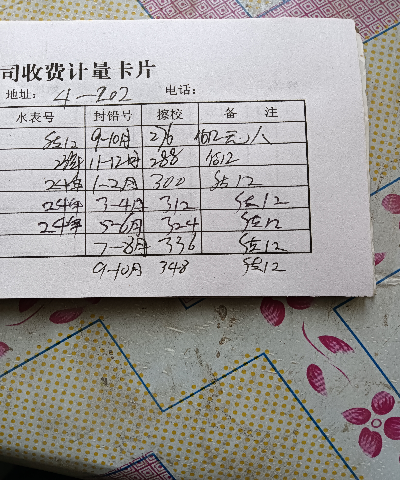 司收费计量卡片
地址: 4-202 电话:
水表号 封铅号 擦校 备 注
估12 9-10月 276 估12
11-12月 288 估12
24年 1-2月 300 估12
24年 3-4月 312 估12
24年 5-6月 324 估12
7-8月 336 估12
9-10月 348 估12